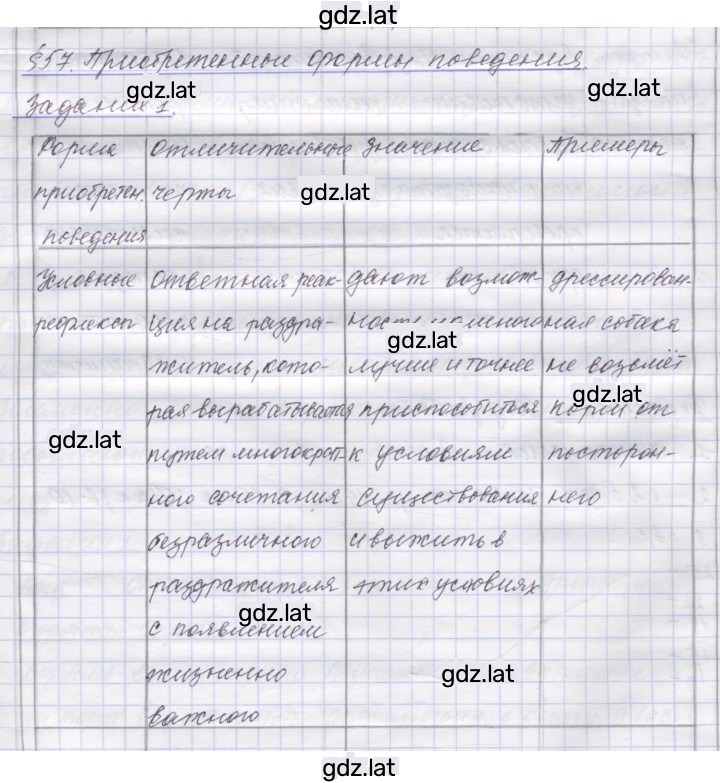 gdz.lat
§57. Приобретенные формы поведения.
gdz.lat
gdz.lat
Задание 1.
Форма приобретен. поведения
Отличительные черты
Значение
Примеры
gdz.lat
Условные рефлексы
Ответная реак-
ция на раздра-
житель, кото-
рая вырабатывается
путем многократ-
ного сочетания
безразличного
раздражителя
с появлением
жизненно
важного
дают возмож-
ность намного
лучше и точнее
приспособиться
к условиям
существования
и выжить в
этих условиях
дрессирован-
ная собака
не возьмёт
корм от
посторон-
него
gdz.lat
gdz.lat
gdz.lat
gdz.lat
gdz.lat
gdz.lat